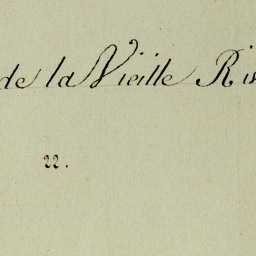 de la Vieille Ri
22.